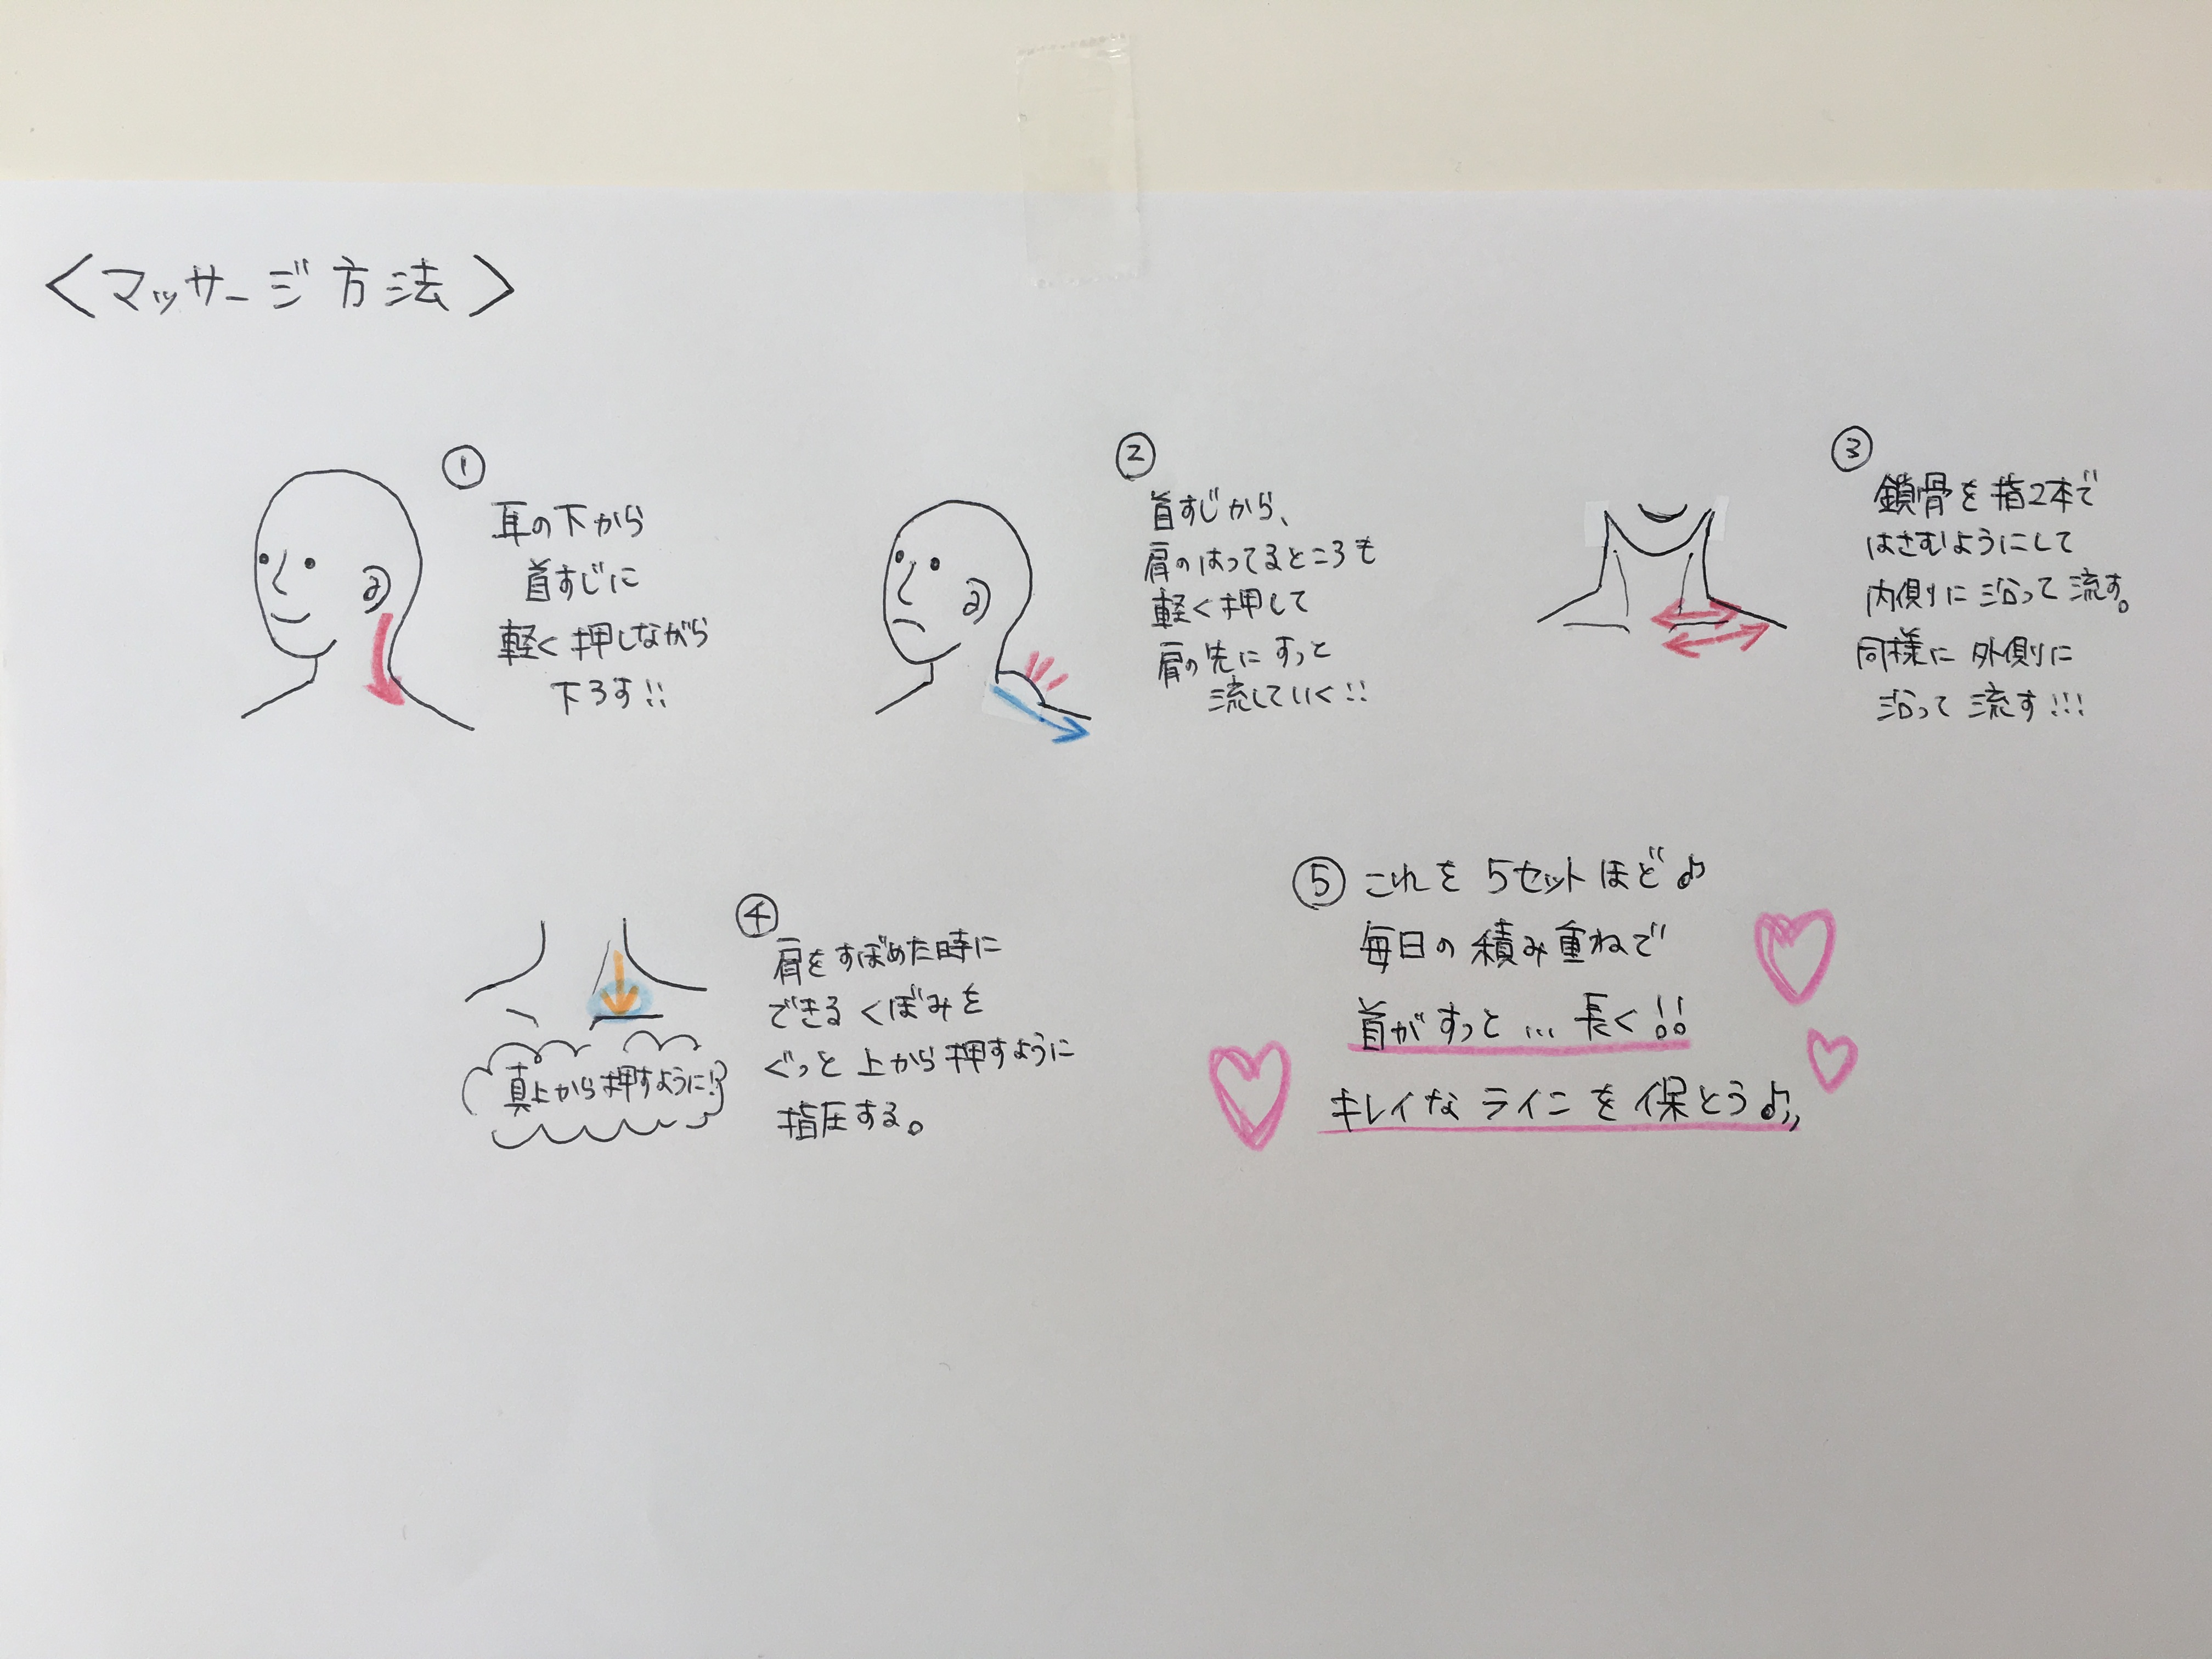 <マッサージ方法>
①
耳の下から
首すじに
軽く押しながら
下ろす!!
②
首すじから、
肩のはってるところも
軽く押して
肩の先にすっと
流していく!!
③
鎖骨を指2本で
はさむようにして
内側に沿って流す。
同様に外側に
沿って流す!!!
④
肩をすぼめた時に
できるくぼみを
ぐっと上から押すように
指圧する。
真上から押すように!
⑤これを5セットほど♪
毎日の積み重ねで
首がすっと…長く!!
キレイなラインを保とう♪